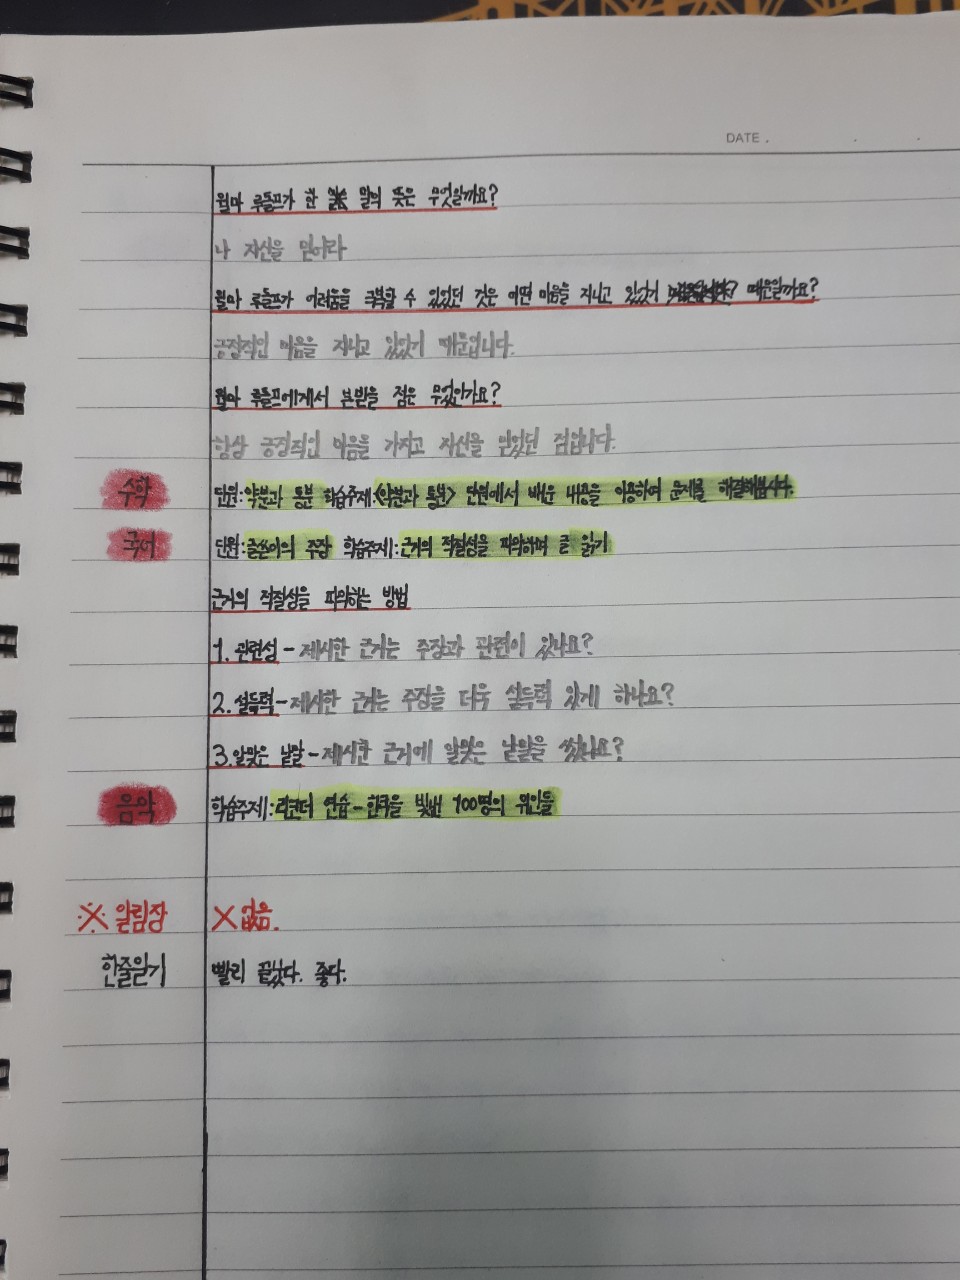 DATE . . .
윌마 루돌프가 한 말의 뜻은 무엇일까요?
나 자신을 믿어라
윌마 루돌프가 어려움을 극복할 수 있었던 것은 어떤 마음을 지니고 있었기 때문일까요?
긍정적인 마음을 지니고 있었기 때문입니다.
윌마 루돌프에게서 본받을 점은 무엇인가요?
항상 긍정적인 마음을 가지고 자신을 믿었던 점입니다.
수학 단원:약분과 통분 학습주제:<약분과 통분> 단원에서 배운 내용을 이용하여 문제를 해결해봅시다.
국어 단원:글쓴이의 주장 학습주제:근거의 적절성을 파악하며 글 읽기
근거의 적절성을 파악하는 방법
1. 관련성 - 제시한 근거는 주장과 관련이 있나요?
2. 설득력 - 제시한 근거는 주장을 더욱 설득력 있게 하나요?
3. 알맞은 낱말 - 제시한 근거에 알맞은 낱말을 썼나요?
음악 학습주제:리코더 연습 - 한국을 빛낸 100명의 위인들
※ 알림장 X 없음.
한줄일기 빨리 끝났다. 좋다.